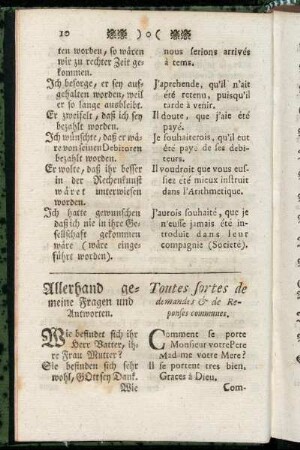 10 )o(
ten worden, so wären
wir zu rechter Zeit ge-
kommen.
Ich besorge, er sey auf-
gehalten worden, weil
er so lange ausbleibt.
Er zweifelt, daß ich sey
bezahlt worden.
Ich wünschte, daß er wä-
re von seinen Debitoren
bezahlt worden.
Er wolte, daß ihr besser
in der Rechenkunst
wäret unterwiesen
worden.
Ich hatte gewünschen
daß ich nie in ihre Ge-
sellschaft gekommen
wäre (wäre einge-
führt worden).
nous serions arrivés
à tems.
J'aprehende, qu'il n'ait
été retenu, puisqu'il
tarde à venir.
Il doute, que j'aie été
payé.
Je souhaiterois, qu'il eut
été payé de ses debi-
teurs.
Il voudroit que vous eus-
siez été mieux instruit
dans l'Arithmetique.
J'aurois souhaité, que je
n'eusse jamais été in-
troduit dans leur
compagnie (Societé).
Allerhand ge-
meine Fragen und
Antworten.
Wie befindet sich ihr
Herr Vatter, ih-
re Frau Mutter?
Sie befinden sich sehr
wohl, GOtt sey Dank.
Wie
Toutes sortes de
demandes & de Re-
ponses communes.
Comment se porte
Monsieur votre Pere
Madame votre Mere?
Il se portent tres bien,
Graces à Dieu.
Com-